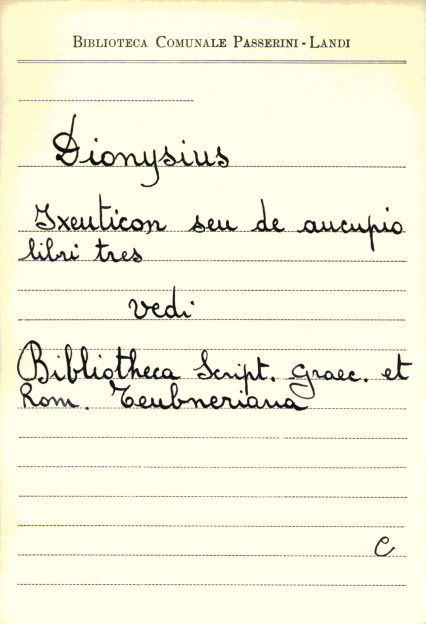 BIBLIOTECA COMUNALE PASSERINI - LANDI
Dionysius
Ixeuticon seu de aucupio
libri tres
vedi
Bibliotheca Script. Graec. et
Rom. Teubneriana
C